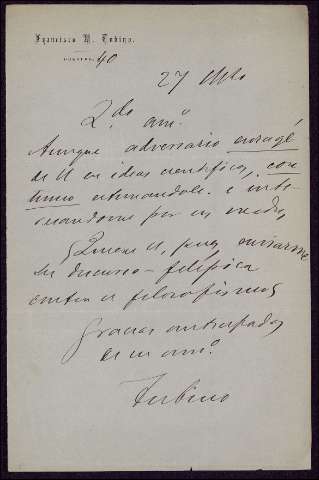 Francisco M. Tubino.
40
27
Q.do am.o
Aunque adversario enragé
de U en ideas científicas, con
tinuo estimandole e inte
resandome por su
¿Quiere U, pues, enviarme
su discurso-filípica
contra el filosofismo?
Gracias anticipadas
de su am.o
Tubino